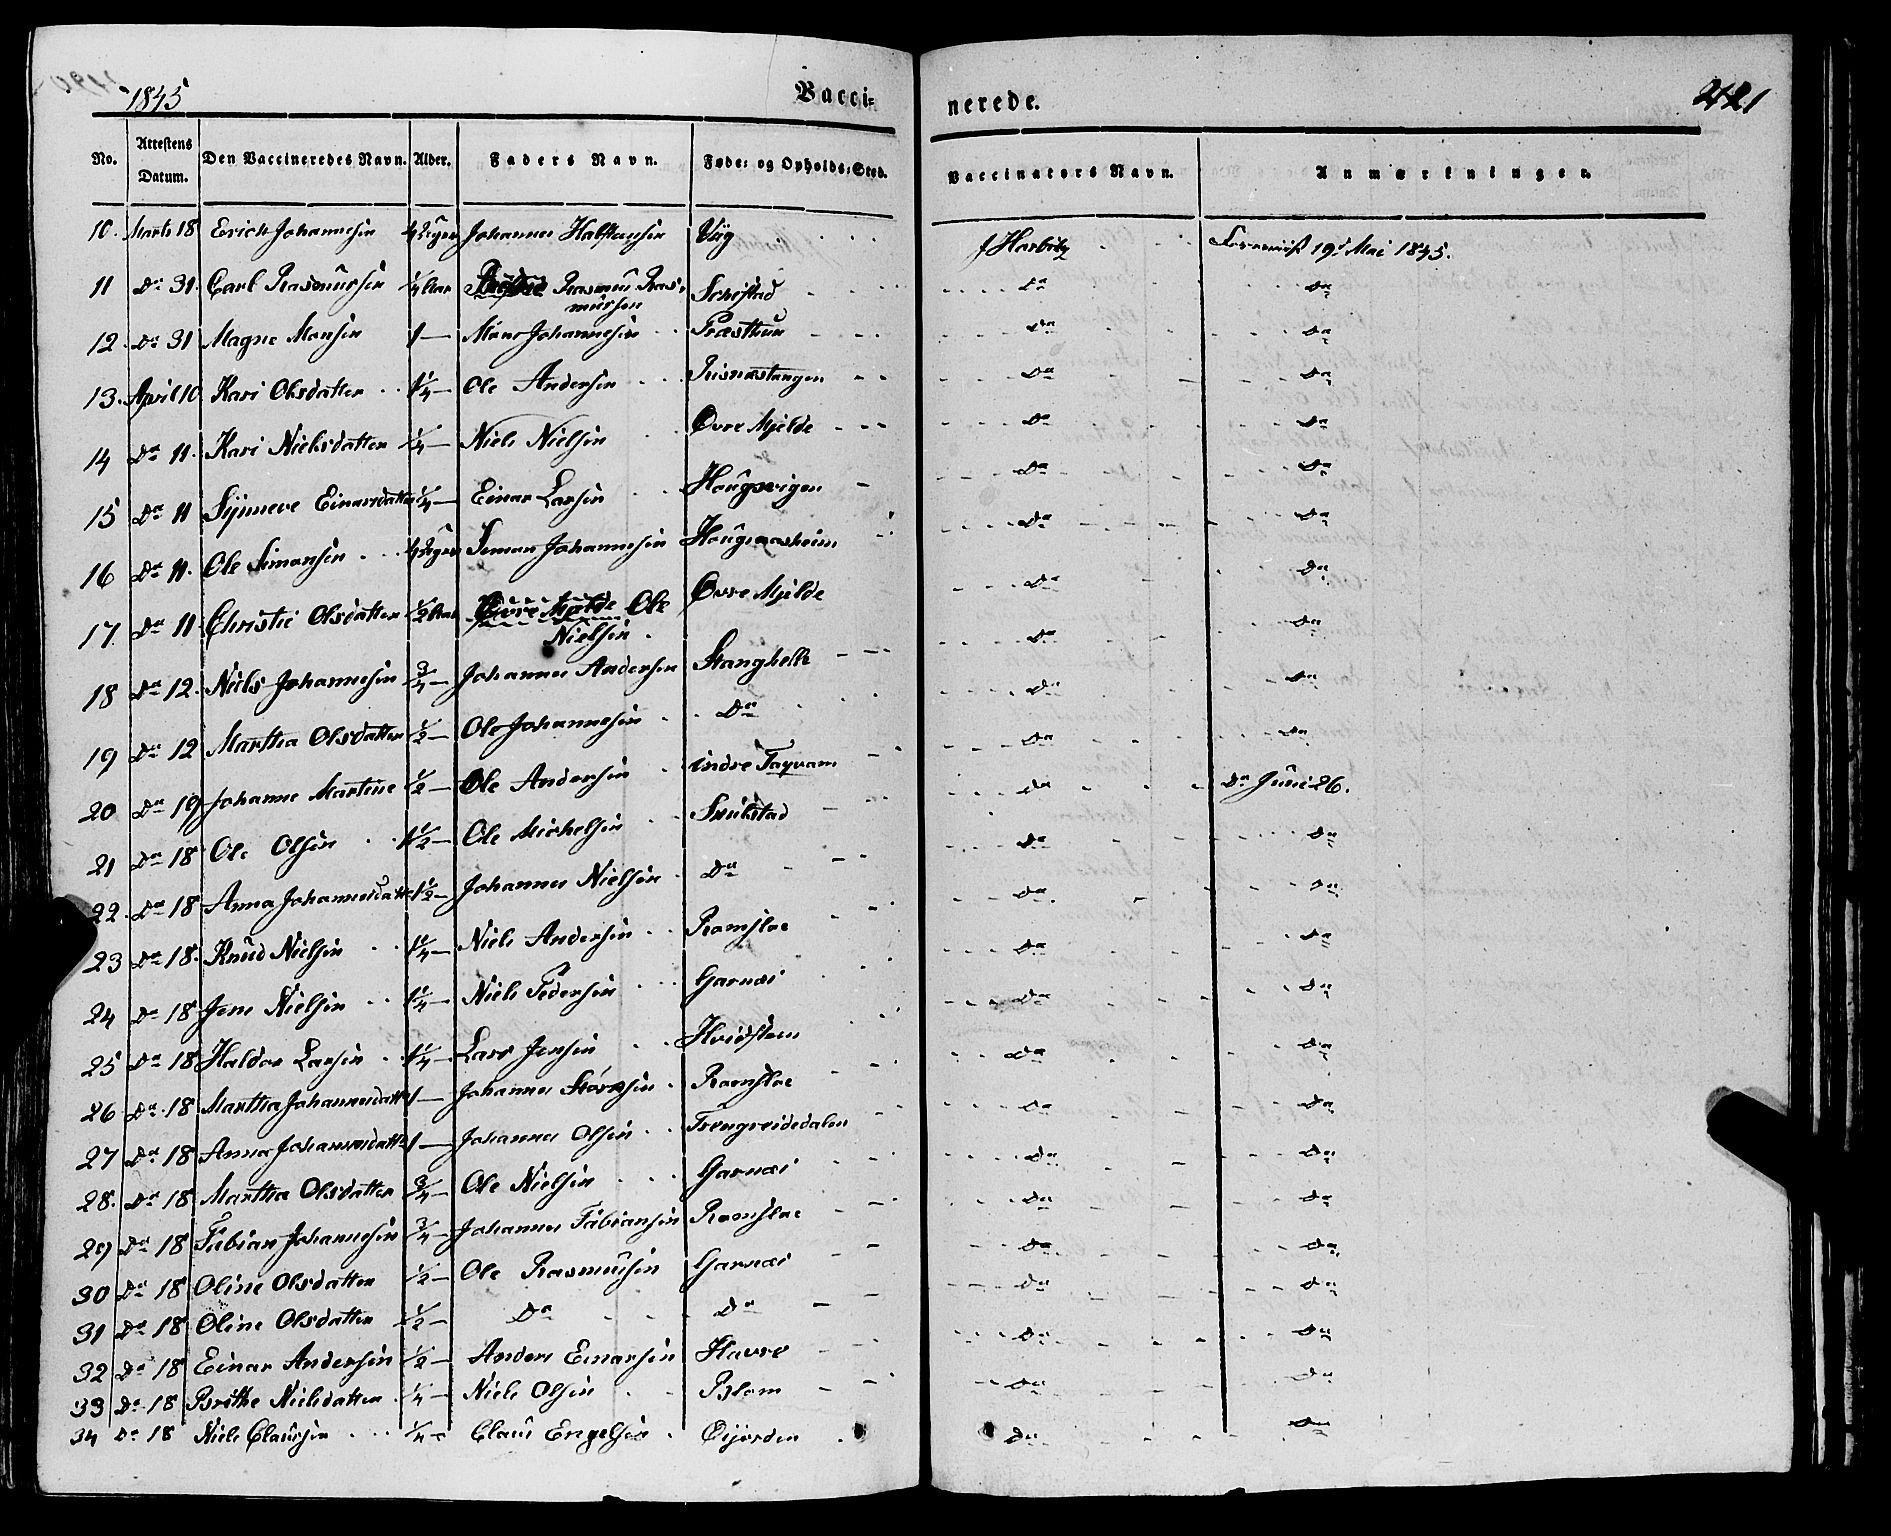 1845 Vacci= nerede. 421
No. Attestens Datum. Den Vaccineredes Navn. Alder. Faders Navn. Føde= og Opholds=Sted. Vaccinators Navn. Anmærkninger.
10. Marts 18 Erich Johannesen 4 Uger Johannes Halstensen Vig Harbitz 19d Mai 1845.
11 Do 31. Carl Rasmussen ¼ Aar Rasmus Ras-
mussen Do Do
12. Do 31 Magne Monsen 1 — Mons Johannesen Præsthun Do Do
13. April 10 Kari Olsdatter 1¼ — Ole Andersen Do Do
14 Do 11. Kari Nielsdatter ¼ — Niels Nielsen Øvre Mjelde Do Do
15 Do 11 Synneve Einarsdatter ¼ — Einar Larsen Hougsvigen Do Do
16 Do 11. Ole Simonsen 4 Uger Simon Johannesen Do Do
17. Do 11. Christie Olsdatter ½ Aar Øvre Mjelde Ole Øvre Mjelde Do Do
Nielsen
18 Do 12. Niels Johannesen ¾ — Johannes Andersen Stanghelle Do Do
19 Do 12 Martha Olsdatter ½ — Ole Johannesen Do Do Do
20 Do 19 Johanne Martine ½ — Ole Andersen indre Taqvam Do Do Juni 26.
21 Do 18 Ole Olsen 1½ — Ole Michelsen Do Do
22. Do 18 Anna Johannesdatt 1½ — Johannes Nielsen Do Do Do
23 Do 18. Knud Nielsen 1¼ — Niels Andersen Romsloe Do Do
24 Do 18 Jens Nielsen 1¼ — Niels Pedersen Garnæs Do Do
25 Do 18 Haldor Larsen 1¼ — Lars Jensen Hvidsteen Do Do
26 Do 18 Martha Johannesdatt 1 — Johannes Romsloe Do Do
27 Do 18 Anna Johannesdatt 1 — Johannes Olsen Trengreidedalen Do Do
28. Do 18 Martha Olsdatter ¾ — Ole Nielsen Garnæs Do Do
29 Do 18 Fabian Johannesen ¾ — Johannes Fabiansen Romsloe Do Do
30 Do 18 Oline Olsdatter ½ — Ole Rasmussen Garnæs Do Do
31 Do 18 Oline Olsdatter ½ — Do Do Do Do
32 Do 18 Einar Andersen ½ — Anders Einarsen Havre Do Do
33 Do 18 Brithe Nielsdatter ¼ — Niels Olsen Blom Do Do
34 Do 18 Niels Claussen ¼ — Claus Engelsen Do Do